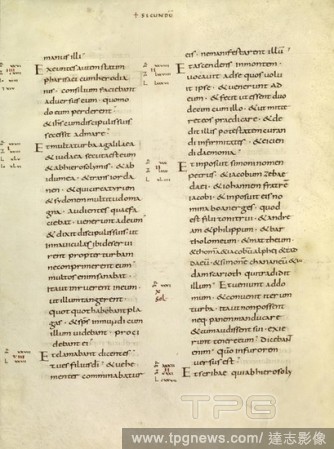 SECUNDU
manus illi
Exeuntes autem statim
pharisaei cum herodia
nis consilium faciebant
adversus eum quomo
do eum perderent
& ihs cum discipulis suis
secessit ad mare
Et multa turba a galilaea
& iudaea secuta est eum
& ab hierosolimis & ab
idumea & trans iorda
nen & qui circa tyrum
& sydonem multitudo ma
gna audientes quae fa
ciebat venerunt ad eum
& dixit discipulis suis ut
in navicula sibi deservi
rent propter turbam
ne conprimerent eum
multos enim sanabat
ita ut inruerent in eum
ut illum tangerent
quotquot habebant pla
gas & sps inmundi cum
illum videbant proci
debant ei
Et clamabant dicentes
tu es filius di & vehe
menter comminabatur
eis ne manifestarent illu
Et ascendens in montem
vocavit ad se quos volu
it ipse & venerunt ad
eum & fecit ut essent duo
decim cum illo & ut mitte
ret eos praedicare & de
dit illis potestatem curan
di infirmitates & eicien
di daemonia
Et imposuit simoni nomen
petrus & iacobum zebe
daei & iohannem fratre
iacobi & imposuit eis no
mina boanerges quod
est filii tonitrui & andre
am & philippum & bar
tholomeum & matheum
& thomam & iacobu alphei & tad
daeu & simone chananeu &
iudam scarioth qui tradidit
illum Et veniunt ad do
mum & convenit iterum
turba ita ut non possent
neq panem manducare
& cum audissent sui exie
runt tenere eum dicebant
enim quo in furorem
versus est
Et scribae qui ab hierosoly
TPG
www.tpgnews.com / 達志影像